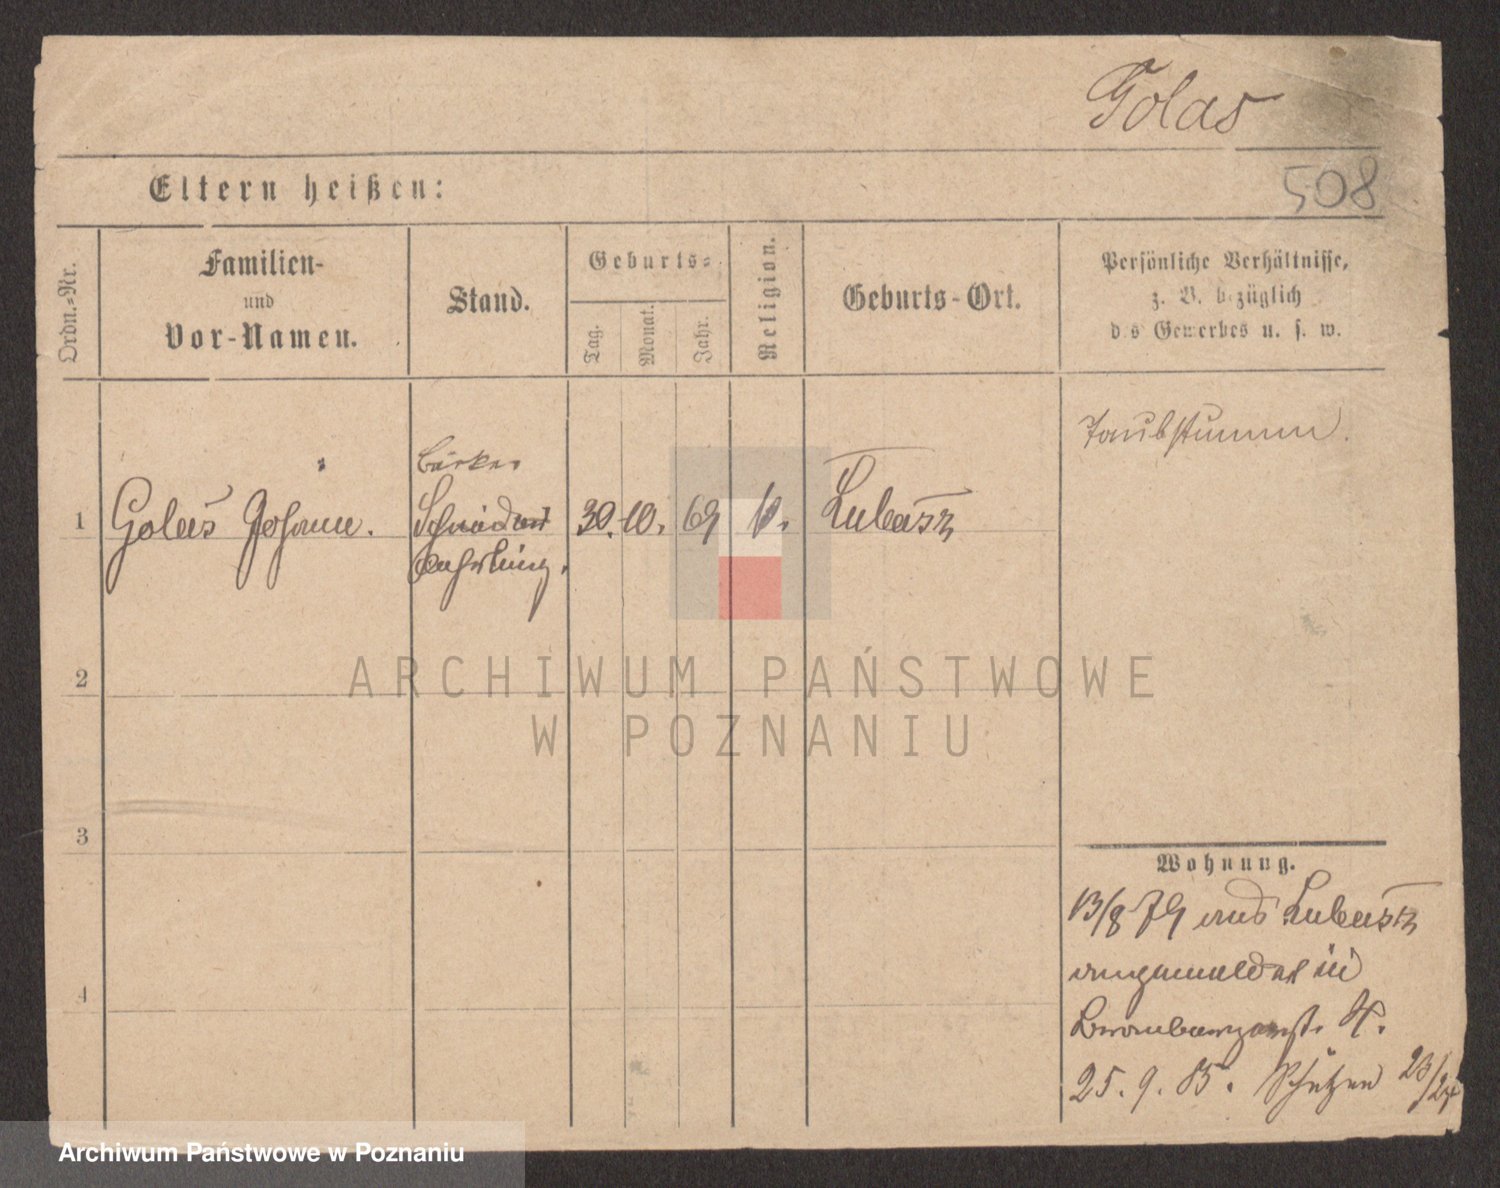 Golas
508
Eltern heißen:
Ordn.-Nr.
Familien-
und
Vor-Namen.
Stand.
Geburts-
Tag.
Monat.
Jahr.
Religion.
Geburts-Ort.
Persönliche Verhältnisse,
z. B. bezüglich
des Gewerbes u. s. w.
Taubstumm.
1
Golas Johann.
30. 10. 69
Lubasz
2
3
4
Wohnung.
13/8 79 aus Lubasz
angemeldet in
Brombergerst. 4.
25. 9. 85. Schützen 23/24
ARCHIWUM PAŃSTWOWE
W POZNANIU
Archiwum Państwowe w Poznaniu